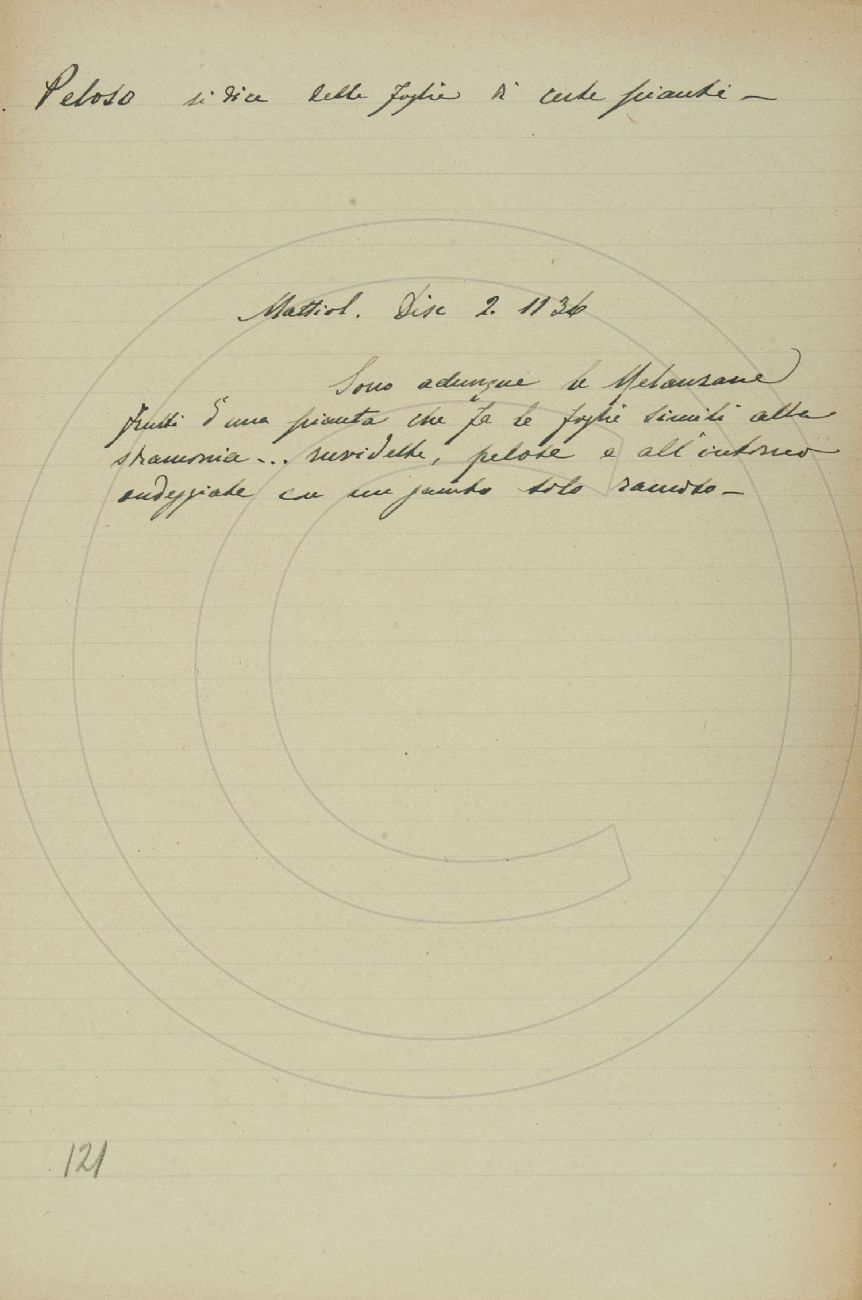 Peloso si dice delle foglie di certe piante —
Mattiol. Disc 2. 1136
Sono adunque le Melanzane
frutti d'una pianta che fa le foglie simili alla
stramonia... ruvidette, pelose e all'intorno
ondeggiate con un gambo solo ramoso —
121